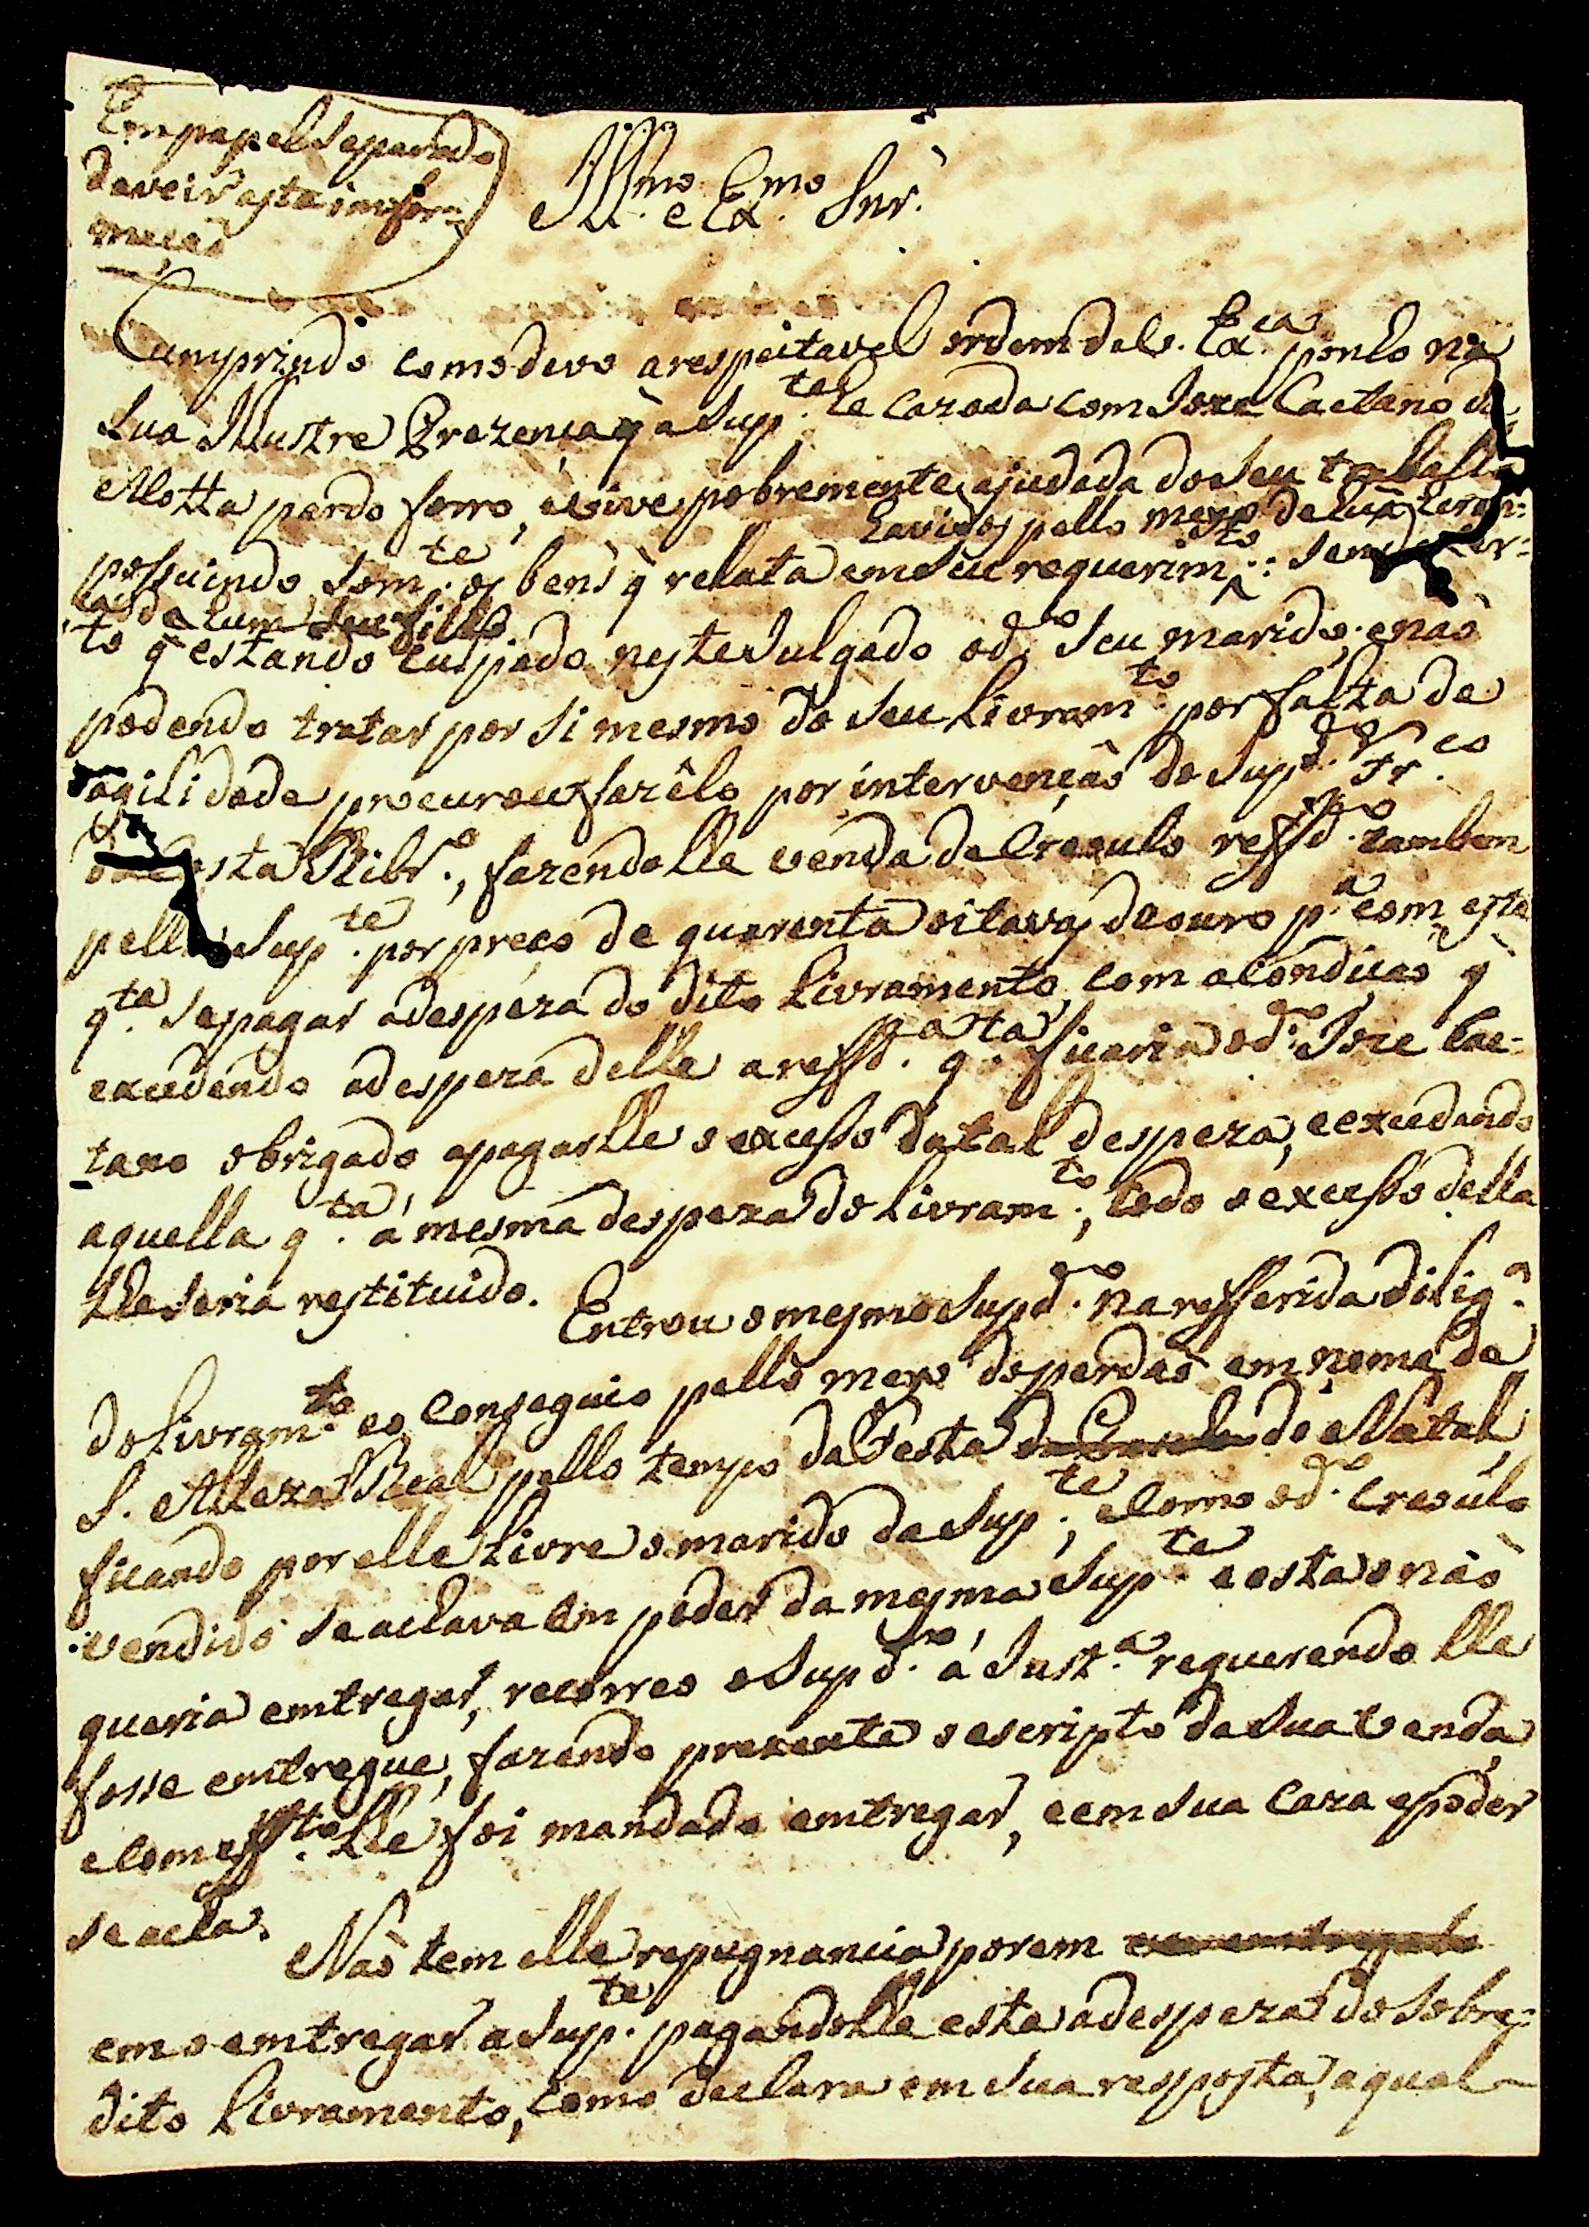 Em papel separado
deve ir esta infor-
mação
Illmo. e Exmo. Snr.
Cumprindo como devo a respeitavel ordem de V. Exca. ponho na
Sua Illustre Prezença q̃ a Supte. he cazada com Joze Caetano da
Motta pardo forro, e vive pobremente, ajudada do seu trabalho
havidos pello meyo de hũa heran-
possuindo somte. os bens q̃ relata em seu requerimto.: sendo cer-
ça de hum seu filho
to q̃ estando culpado neste Julgado o do. seu marido, e naõ
podendo tratar por si mesmo do seu Livramto. por falta de
agilidade procurou fazêlo por intervençaõ do Supdo. Frco.
da Costa Ribro., fazendolhe venda do Creoulo reffdo. tambem
pella Supte. por preço de quarenta oitavas de ouro pa. com esta
qta. se pagar a despeza do dito Livramento, com a condiçaõ q̃
excedendo a despeza delle a reffda. qta. ficaria o do. Joze Cae-
tano obrigado a pagarlhe o excesso da tal despeza, e excedendo
aquella qta. á mesma despeza do Livramto., todo o excesso della
lhe seria restituido.
Entrou o mesmo Supdo. na refferida diliga.
do Livramto. e o conseguio pello meyo do perdaõ em nome de
S. Alteza Real pello tempo da Festa do Natal,
ficando por elle livre o marido da Supte., e como o do. Creoulo
vendido se achava em poder da mesma Supte. e esta o naõ
queria emtregar, recorreo o Supdo. á Justa. requerendo lhe
fosse emtregue, fazendo prezente o escripto da sua venda,
e com effto. lhe foi mandado emtregar, e em sua caza e poder
se acha.
Naõ tem elle repugnancia porem
em o emtregar a Supte. pagandolhe esta a despeza do sobre-
dito Livramento, como declara em sua resposta, a qual